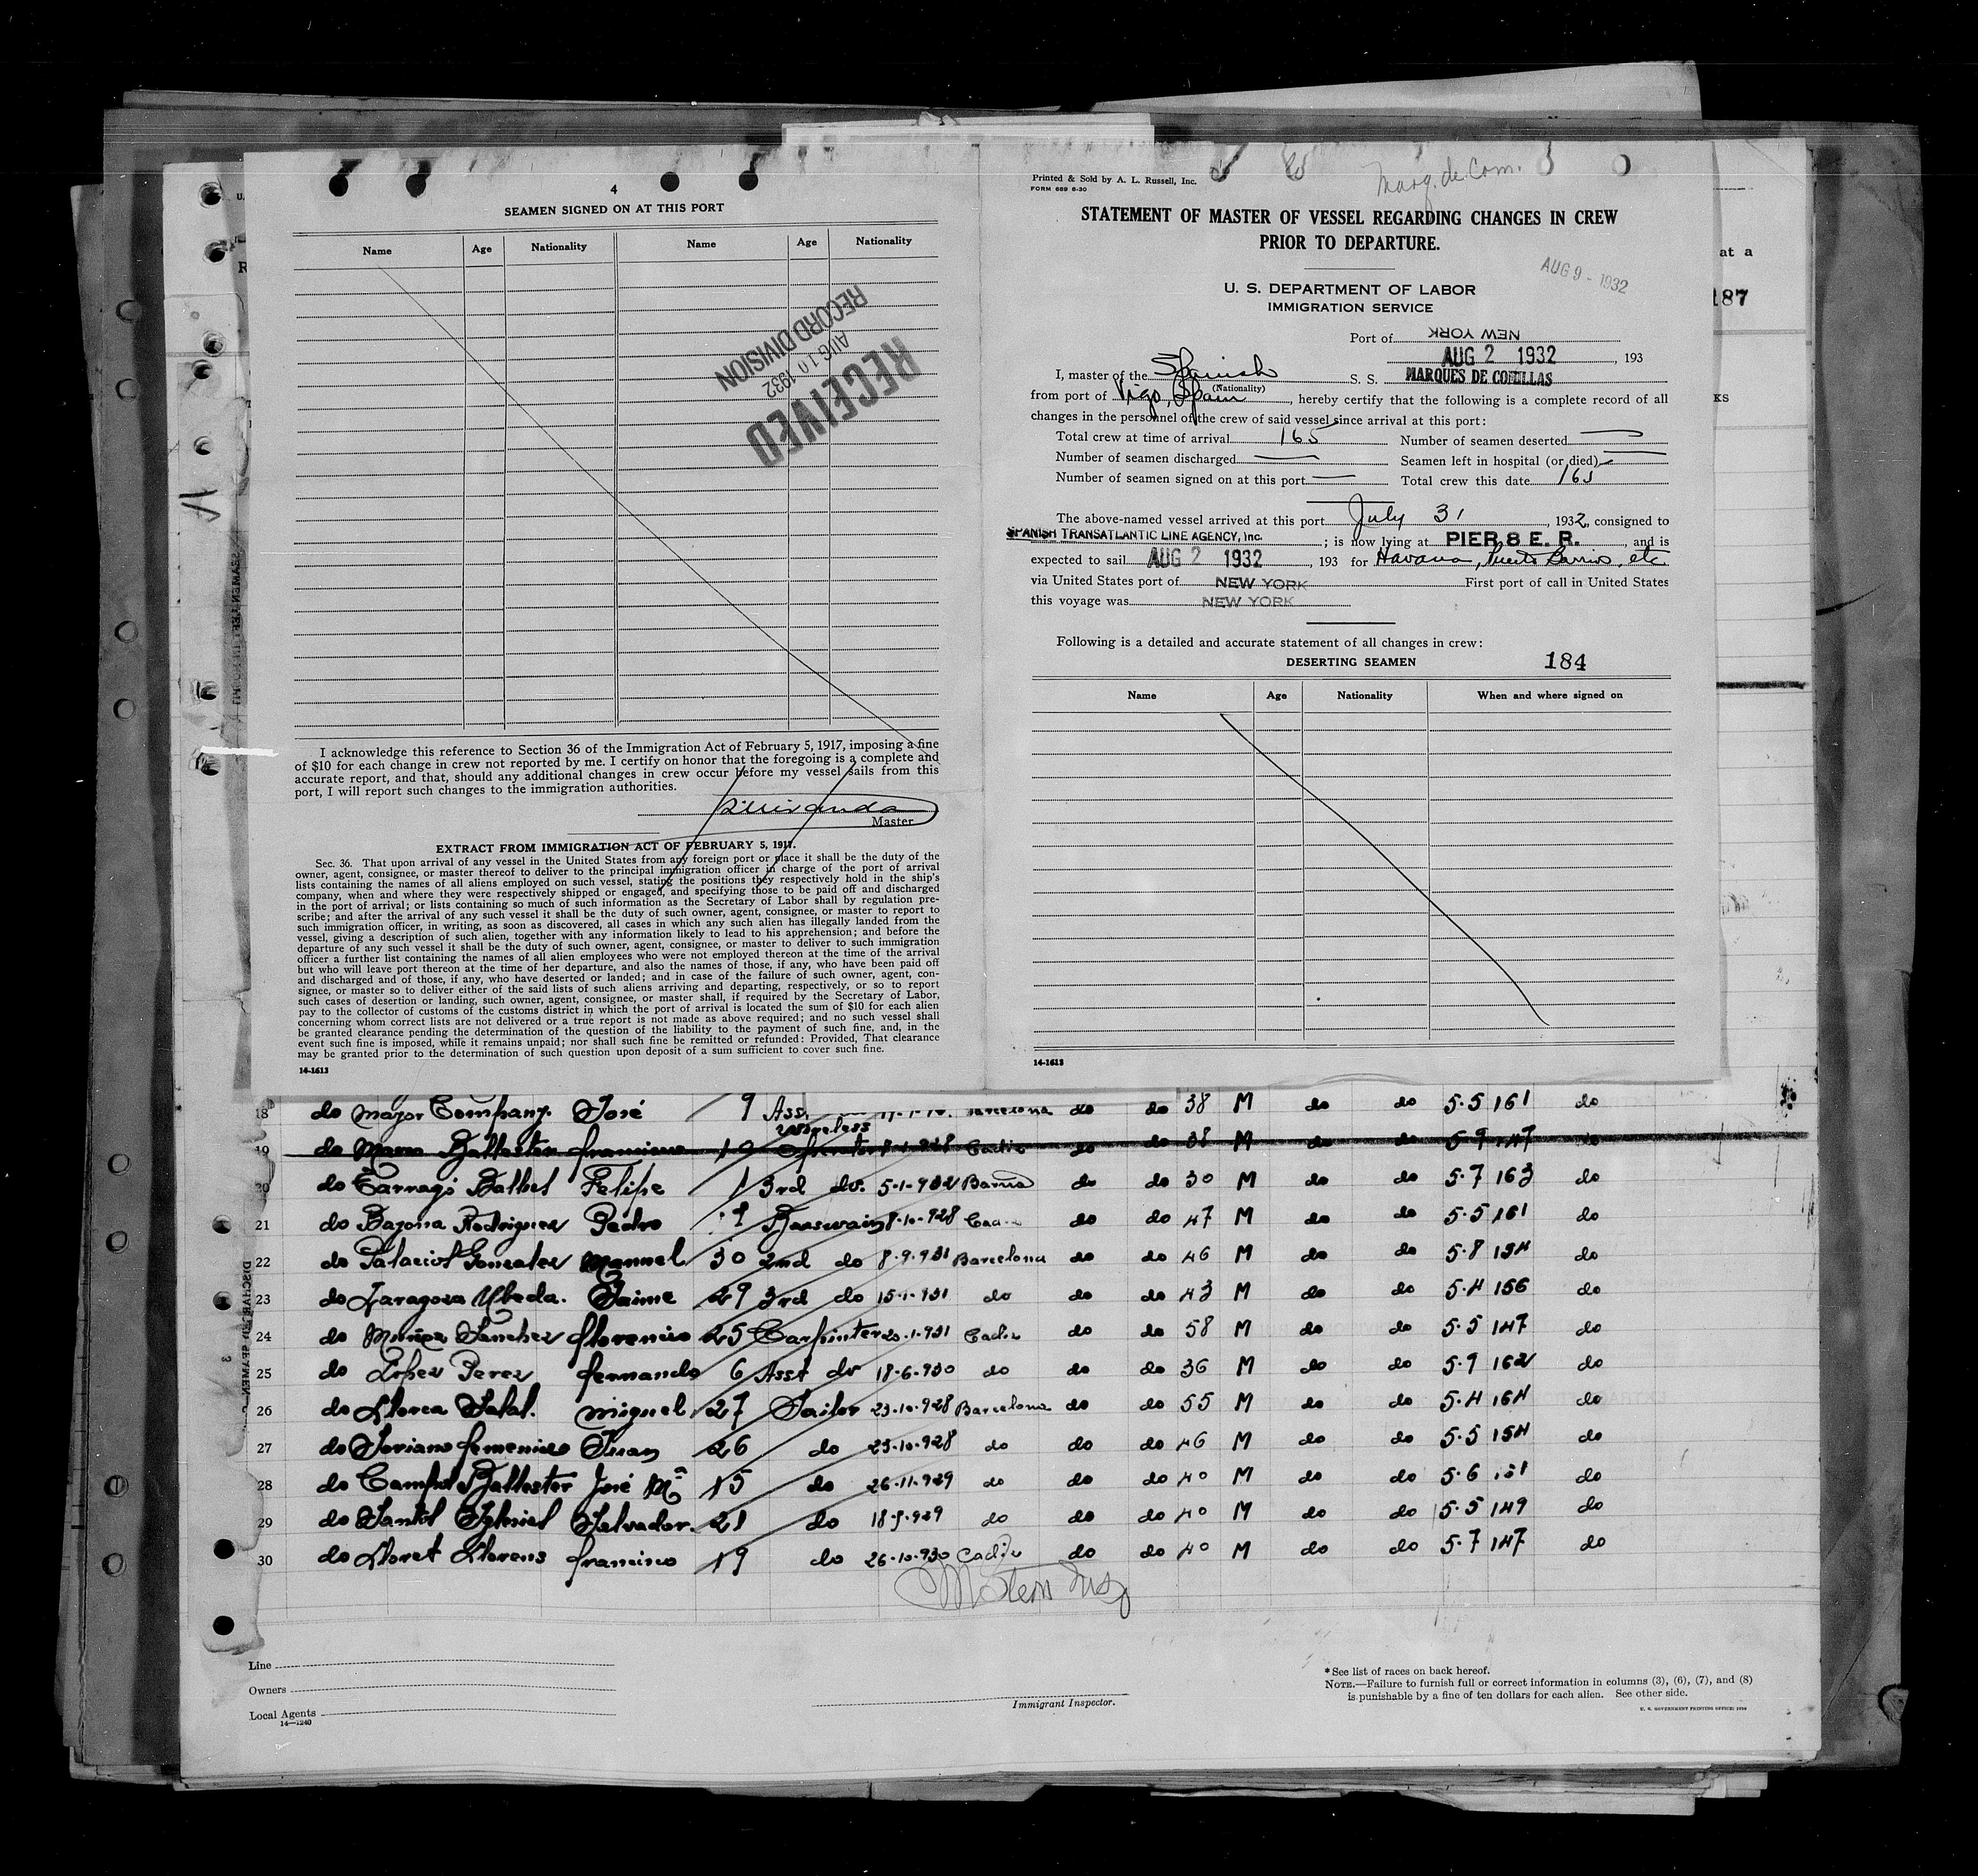 4
SEAMEN SIGNED ON AT THIS PORT
Name Age Nationality Name Age Nationality
RECEIVED
AUG 10 1932
RECORD DIVISION
I acknowledge this reference to Section 36 of the Immigration Act of February 5, 1917, imposing a fine
of $10 for each change in crew not reported by me. I certify on honor that the foregoing is a complete and
accurate report, and that, should any additional changes in crew occur before my vessel sails from this
port, I will report such changes to the immigration authorities.
Master
EXTRACT FROM IMMIGRATION ACT OF FEBRUARY 5, 1917.
Sec. 36. That upon arrival of any vessel in the United States from any foreign port or place it shall be the duty of the
owner, agent, consignee, or master thereof to deliver to the principal immigration officer in charge of the port of arrival
lists containing the names of all aliens employed on such vessel, stating the positions they respectively hold in the ship's
company, when and where they were respectively shipped or engaged, and specifying those to be paid off and discharged
in the port of arrival; or lists containing so much of such information as the Secretary of Labor shall by regulation pre-
scribe; and after the arrival of any such vessel it shall be the duty of such owner, agent, consignee, or master to report to
such immigration officer, in writing, as soon as discovered, all cases in which any such alien has illegally landed from the
vessel, giving a description of such alien, together with any information likely to lead to his apprehension; and before the
departure of any such vessel it shall be the duty of such owner, agent, consignee, or master to deliver to such immigration
officer a further list containing the names of all alien employees who were not employed thereon at the time of the arrival
but who will leave port thereon at the time of her departure, and also the names of those, if any, who have been paid off
and discharged and of those, if any, who have deserted or landed; and in case of the failure of such owner, agent, con-
signee, or master so to deliver either of the said lists of such aliens arriving and departing, respectively, or so to report
such cases of desertion or landing, such owner, agent, consignee, or master shall, if required by the Secretary of Labor,
pay to the collector of customs of the customs district in which the port of arrival is located the sum of $10 for each alien
concerning whom correct lists are not delivered or a true report is not made as above required; and no such vessel shall
be granted clearance pending the determination of the question of the liability to the payment of such fine, and, in the
event such fine is imposed, while it remains unpaid; nor shall such fine be remitted or refunded: Provided, That clearance
may be granted prior to the determination of such question upon deposit of a sum sufficient to cover such fine.
14-1613
Printed & Sold by A. L. Russell, Inc.
FORM 689 6-30
Marq. de Com.
STATEMENT OF MASTER OF VESSEL REGARDING CHANGES IN CREW
PRIOR TO DEPARTURE.
AUG 9 - 1932
U. S. DEPARTMENT OF LABOR
IMMIGRATION SERVICE
Port of NEW YORK
AUG 2 1932, 193
I, master of the Spanish S. S. MARQUES DE COMILLAS
(Nationality)
from port of Vigo, Spain, hereby certify that the following is a complete record of all
changes in the personnel of the crew of said vessel since arrival at this port:
Total crew at time of arrival 165 Number of seamen deserted —
Number of seamen discharged — Seamen left in hospital (or died) —
Number of seamen signed on at this port — Total crew this date 165
The above-named vessel arrived at this port July 31, 1932, consigned to
SPANISH TRANSATLANTIC LINE AGENCY, Inc.; is now lying at PIER 8 E. R., and is
expected to sail AUG 2 1932, 193 for Havana, Puerto Barrios, etc
via United States port of NEW YORK First port of call in United States
this voyage was NEW YORK
Following is a detailed and accurate statement of all changes in crew:
DESERTING SEAMEN 184
Name Age Nationality When and where signed on
14-1613
at a
187
KS
18 do Mayor Company. José 9 Asst. Barcelona do do 38 M do do 5.5 161 do
19 do Ballester Francisco 19 Wireless Operator Cadiz do do 38 M do do 5 9 147 do
20 do Tarragó Balbel Felipe 1 3rd do. 5-1-932 Barna do do 30 M do do 5.7 163 do
21 do Bazona Rodriguez Pedro Boaswain 8-10-928 Cadiz do do 47 M do do 5.5 161 do
22 do Palaciol Gonzalez Manuel 30 2nd do 8-9-931 Barcelona do do 46 M do do 5.8 154 do
23 do Zaragoza Ubeda. Jaime 29 3rd do 15-1-931 do do do 43 M do do 5.4 156 do
24 do Muñoz Sanchez Florencio 25 Carpinter 20-1-931 Cadiz do do 58 M do do 5.5 147 do
25 do Lopez Perez Fernando 6 Asst do 18-6-930 do do do 36 M do do 5.9 162 do
26 do Llorca Miguel 27 Sailor 23-10-928 Barcelona do do 55 M do do 5.4 164 do
27 do Soriano Femenias Juan 26 do 23-10-928 do do do 46 M do do 5.5 154 do
28 do Ballester José Mª 15 do 26-11-929 do do do 40 M do do 5.6 151 do
29 do Salvador. 21 do 18-9-929 do do do 40 M do do 5.5 149 do
30 do Lloret Llorens Francisco 19 do 26-10-930 Cadiz do do 40 M do do 5.7 147 do
Line
Owners
Local Agents
14—1240
Immigrant Inspector.
* See list of races on back hereof.
NOTE.—Failure to furnish full or correct information in columns (3), (6), (7), and (8)
is punishable by a fine of ten dollars for each alien. See other side.
U. S. GOVERNMENT PRINTING OFFICE: 1930